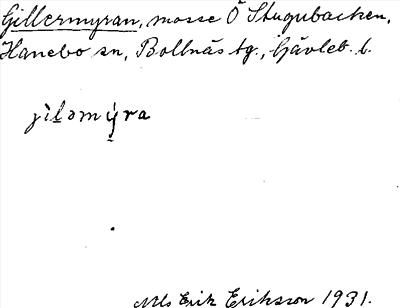 Gillermyran, mosse Ö Stugubacken,
Hanebo sn, Bollnäs tg., Gävleb. l.
jìl̠əmý̠ra
Nils Erik Eriksson 1931.